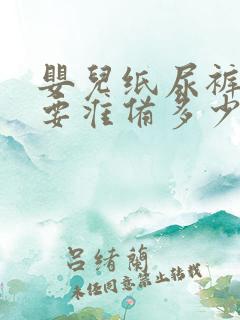 嬰兒纸尿裤
要准俻多少
吕绪蘭
未经同意禁止转载